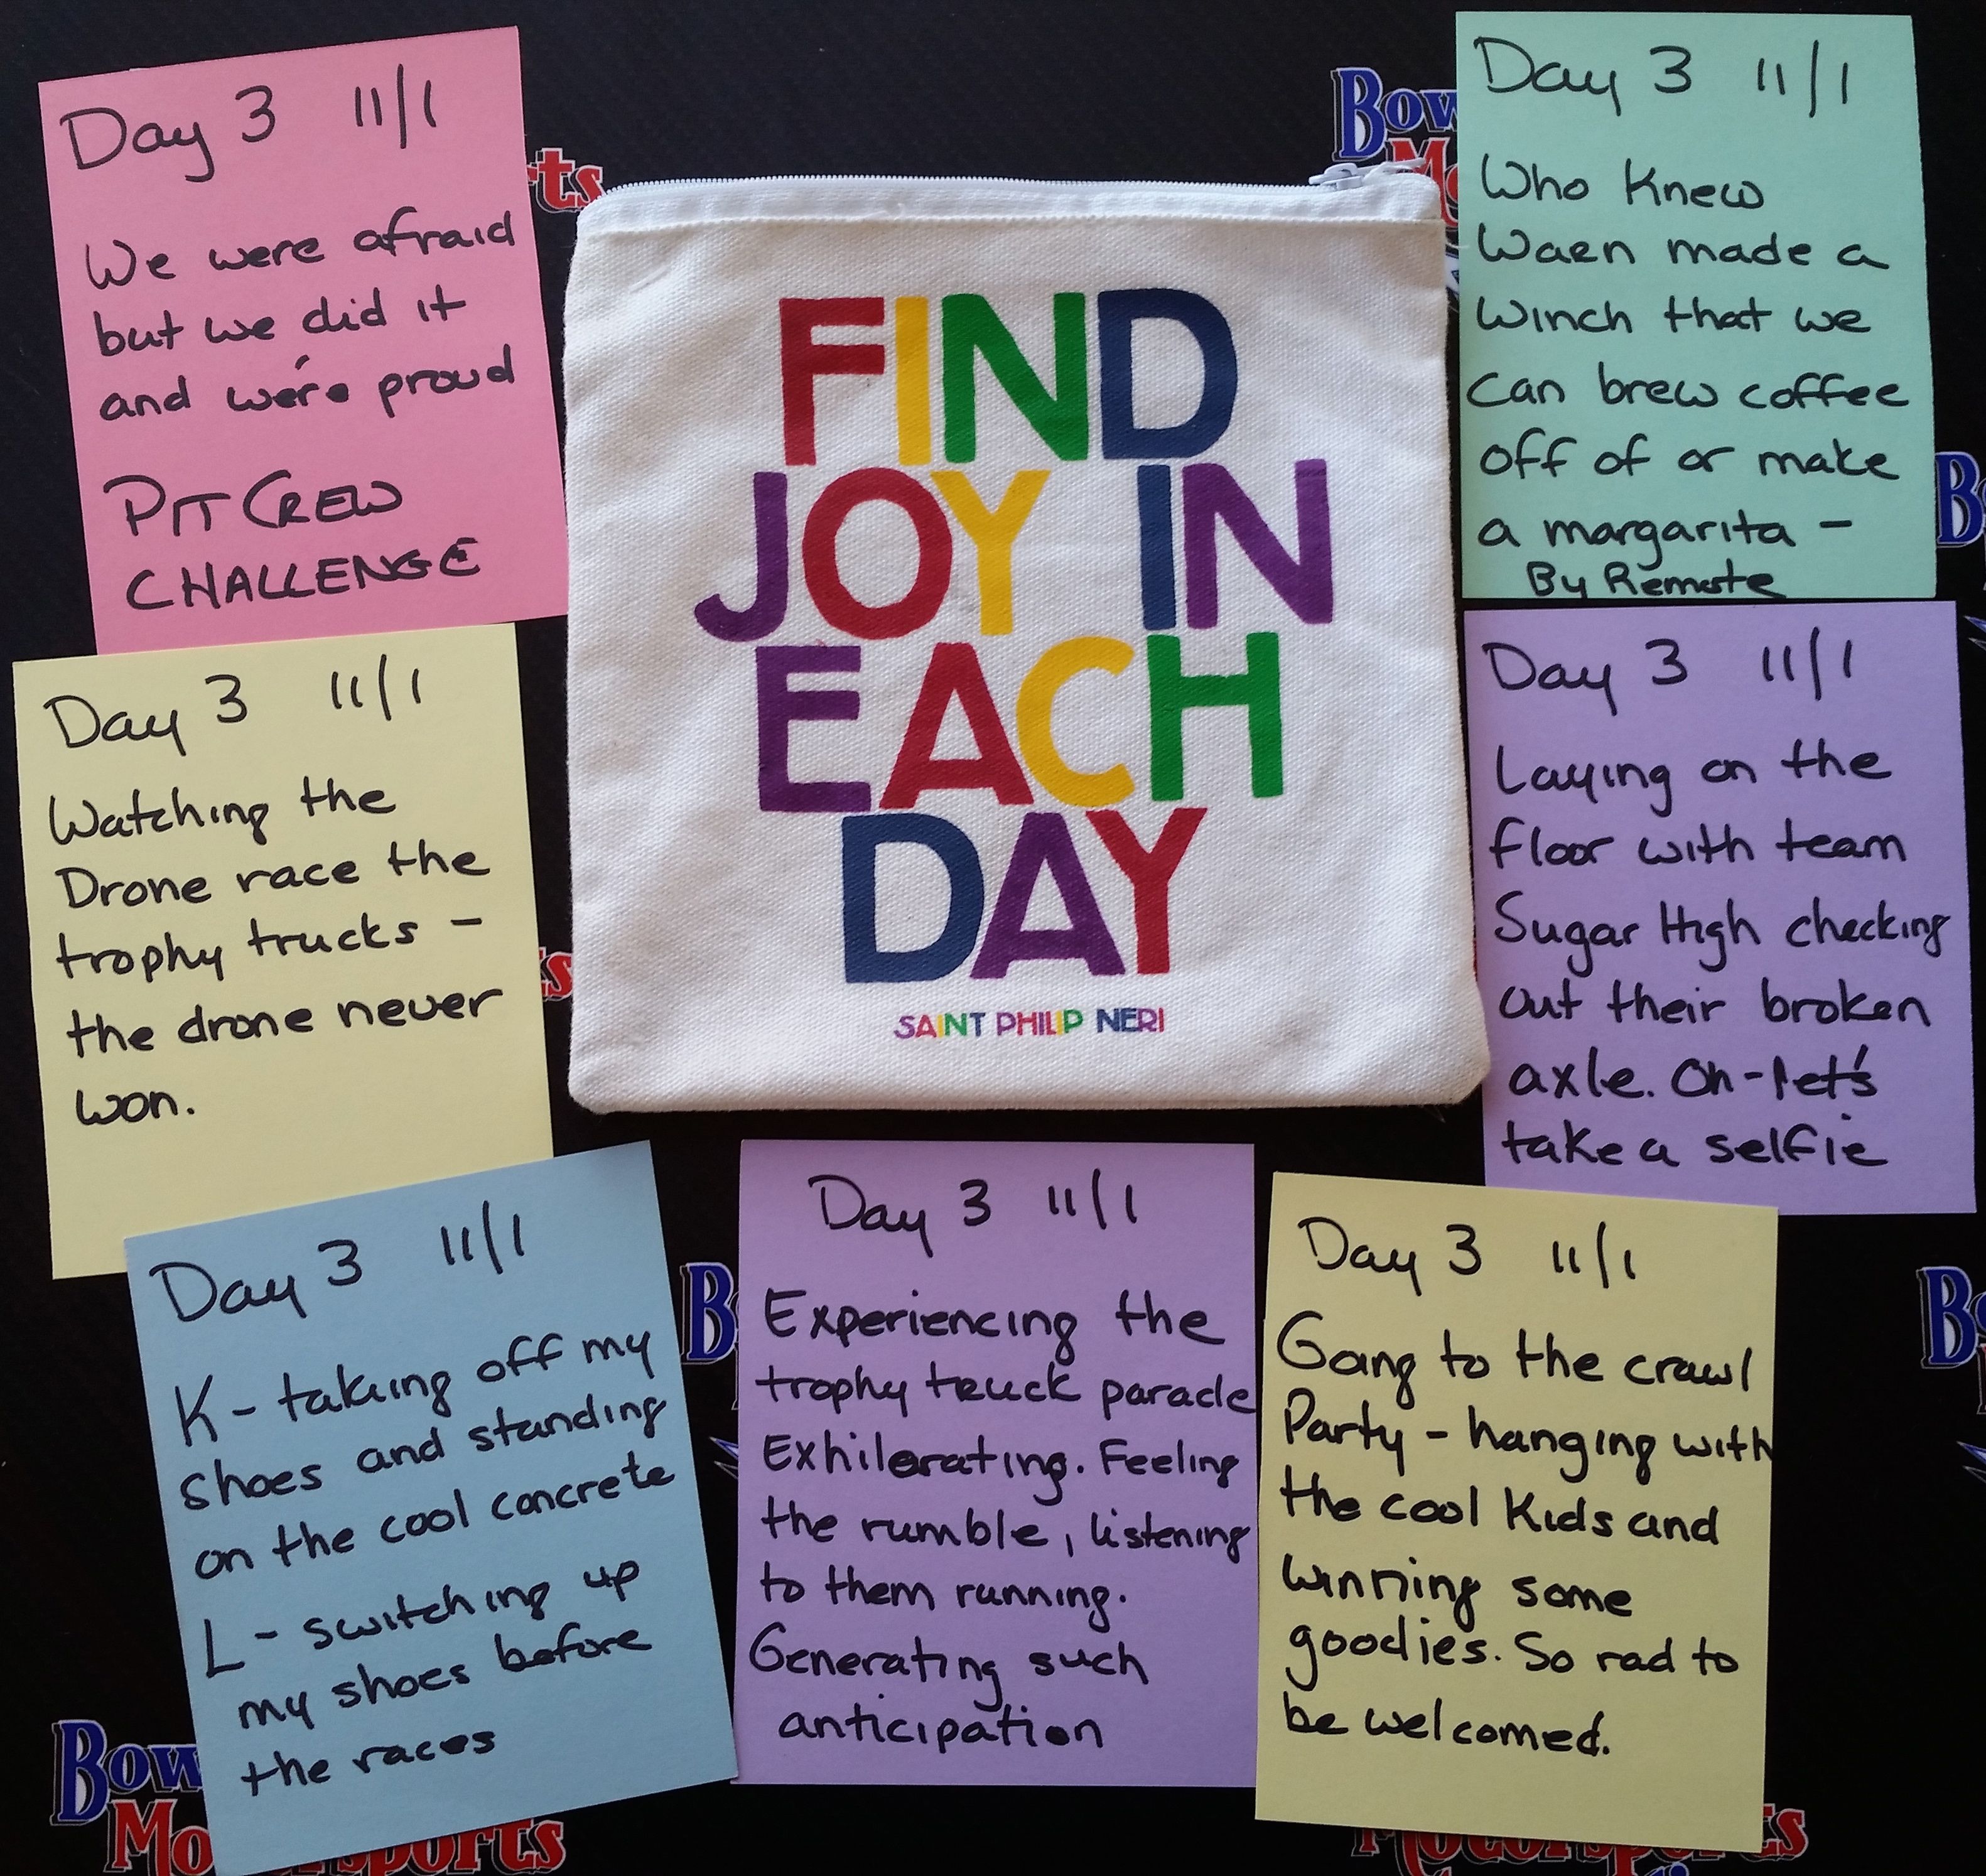 Day 3 11/1
We were afraid
but we did it
and we're proud
PIT CREW
CHALLENGE
Day 3 11/1
Watching the
Drone race the
trophy trucks -
the drone never
won.
Day 3 11/1
K - taking off my
shoes and standing
on the cool concrete
L - switching up
my shoes before
the races
FIND
JOY IN
EACH
DAY
SAINT PHILIP NERI
Day 3 11/1
Experiencing the
trophy truck parade
Exhilerating. Feeling
the rumble, listening
to them running.
Generating such
anticipation
Day 3 11/1
Who Knew
Waen made a
winch that we
can brew coffee
off of or make
a margarita -
By Remote
Day 3 11/1
Laying on the
floor with team
Sugar High checking
out their broken
axle. Oh - let's
take a selfie
Day 3 11/1
Going to the crawl
Party - hanging with
the cool Kids and
winning some
goodies. So rad to
be welcomed.
Bow
Motorsports
Motorsports